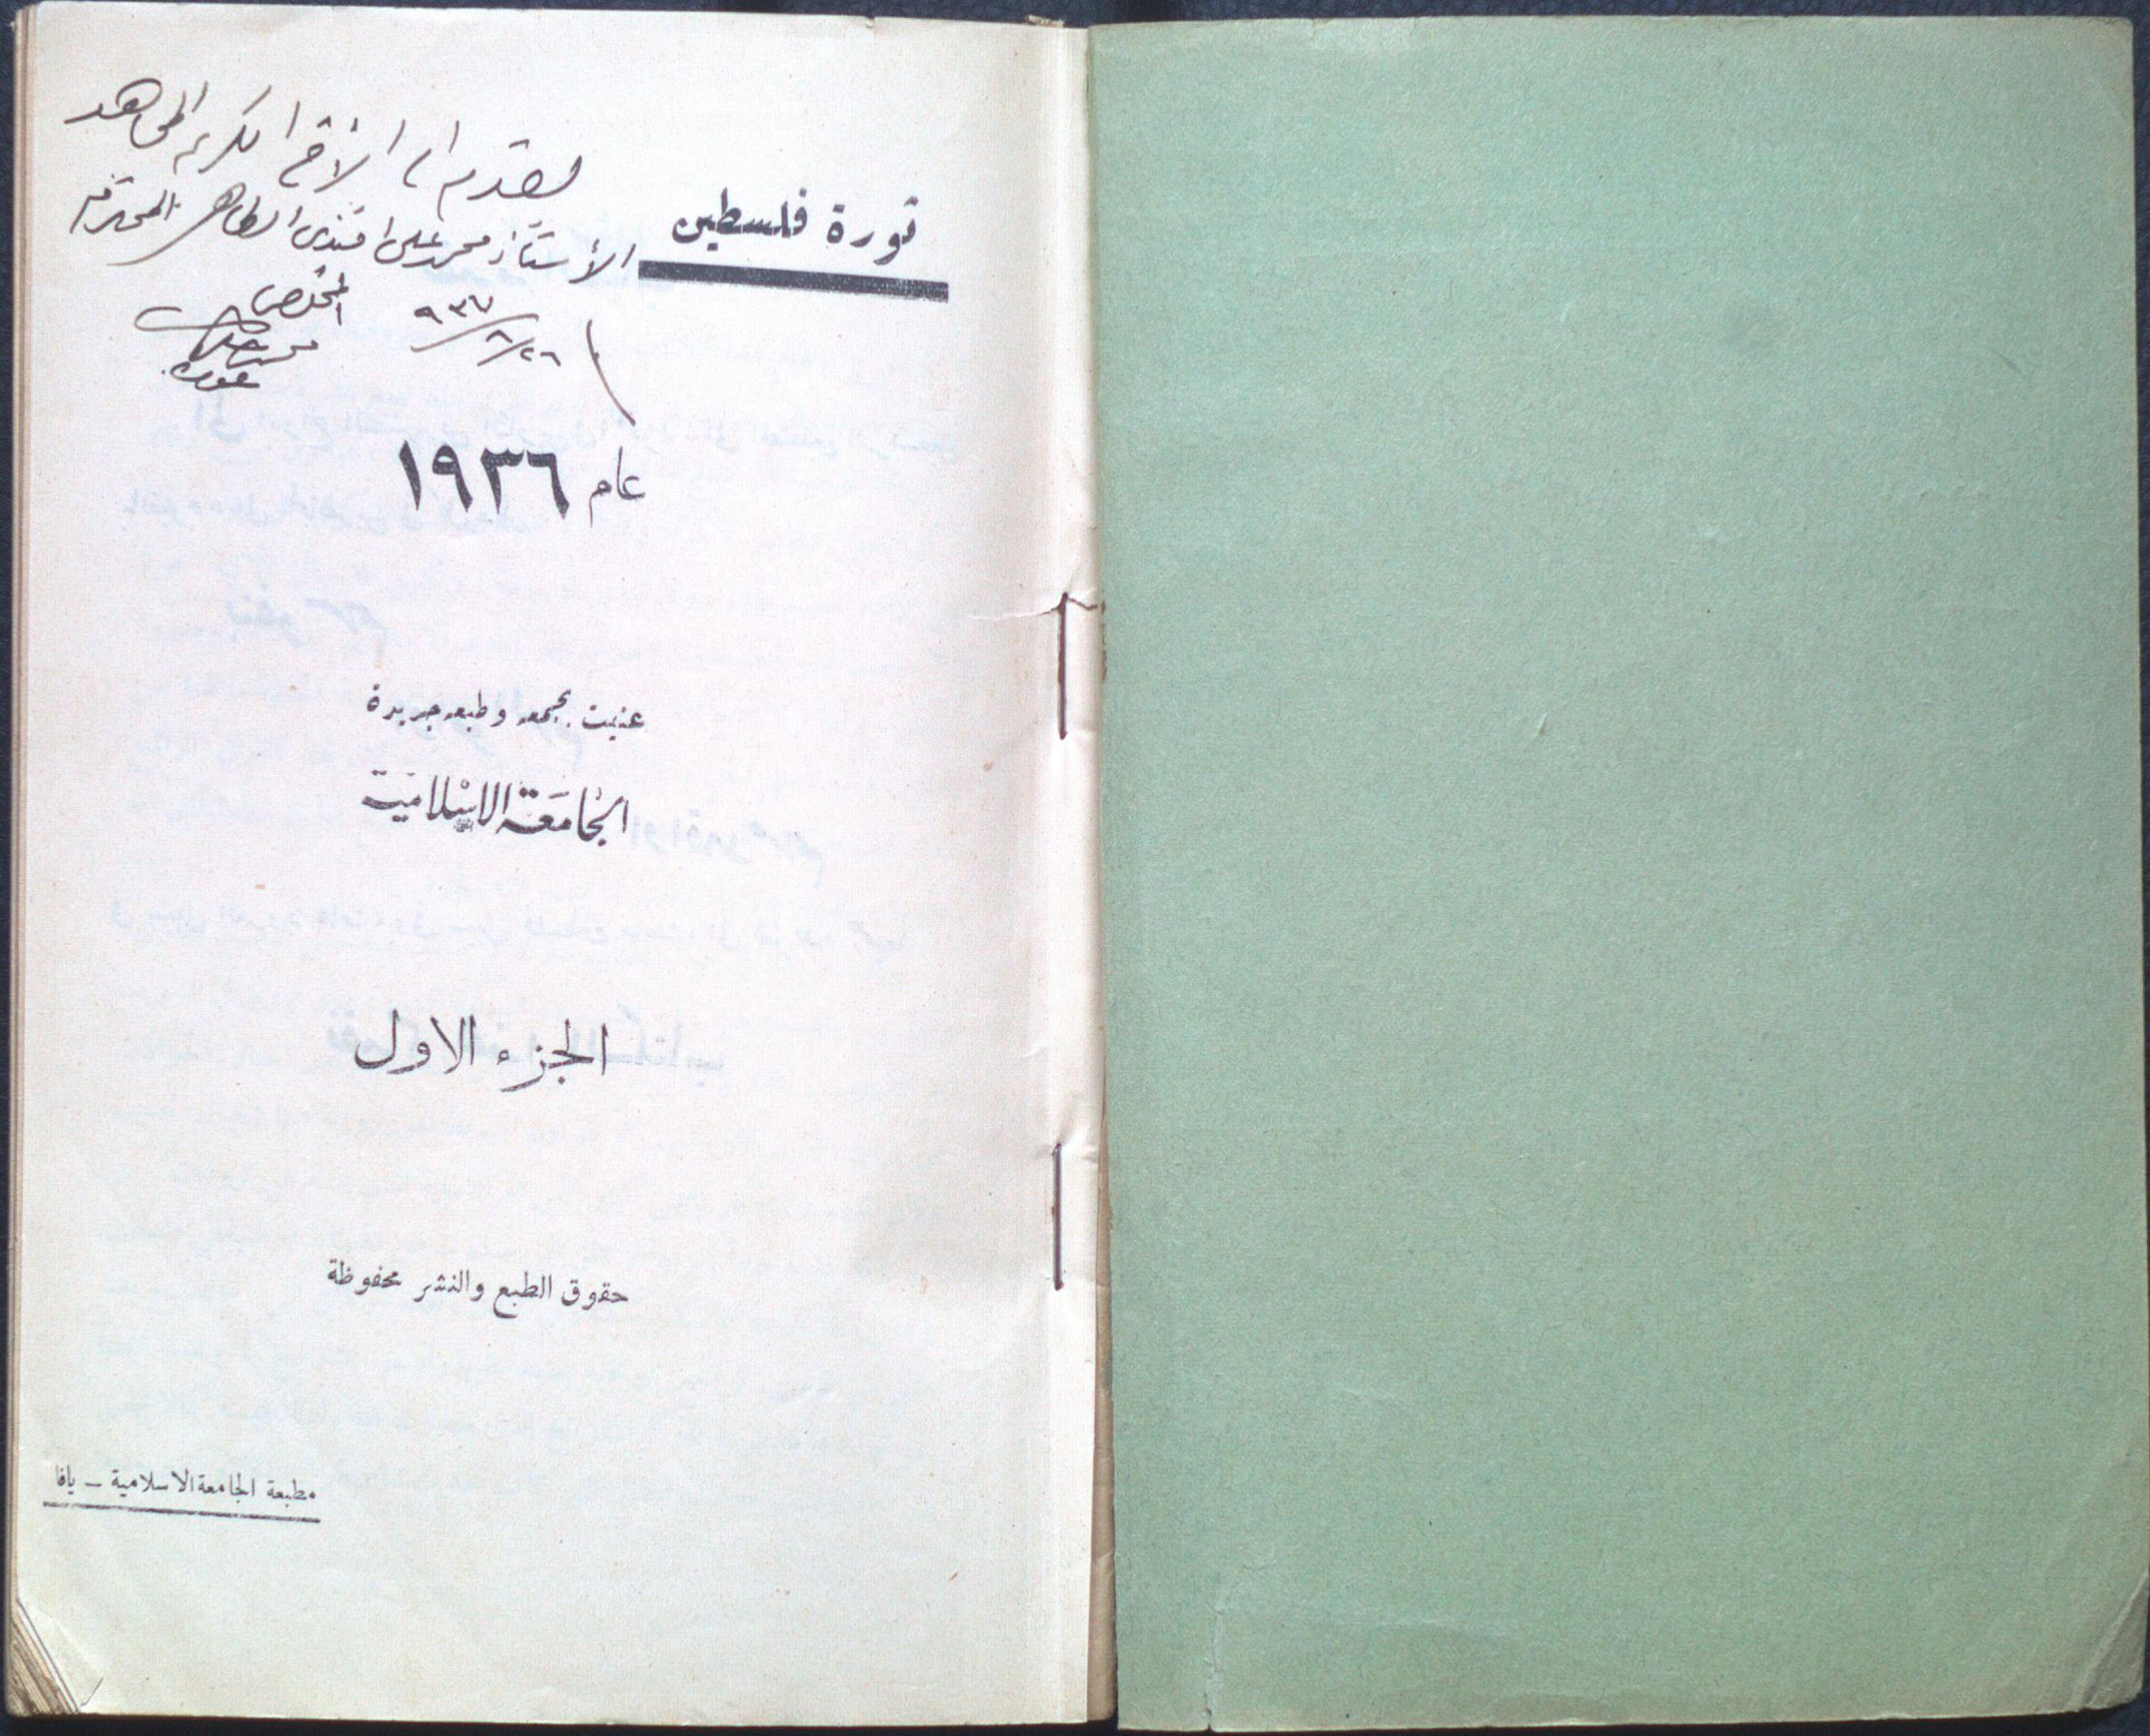 يقدم الى الاخ الكريم المجاهد
الأستاذ محمد علي افندي الطاهر المحترم
المخلص
محمد
٩٣٧/٦/٢٦
ثورة فلسطين
عام ١٩٣٦
عنيت بجمعه وطبعه جريدة
الجامعة الاسلامية
الجزء الاول
حقوق الطبع والنشر محفوظة
مطبعة الجامعة الاسلامية - يافا